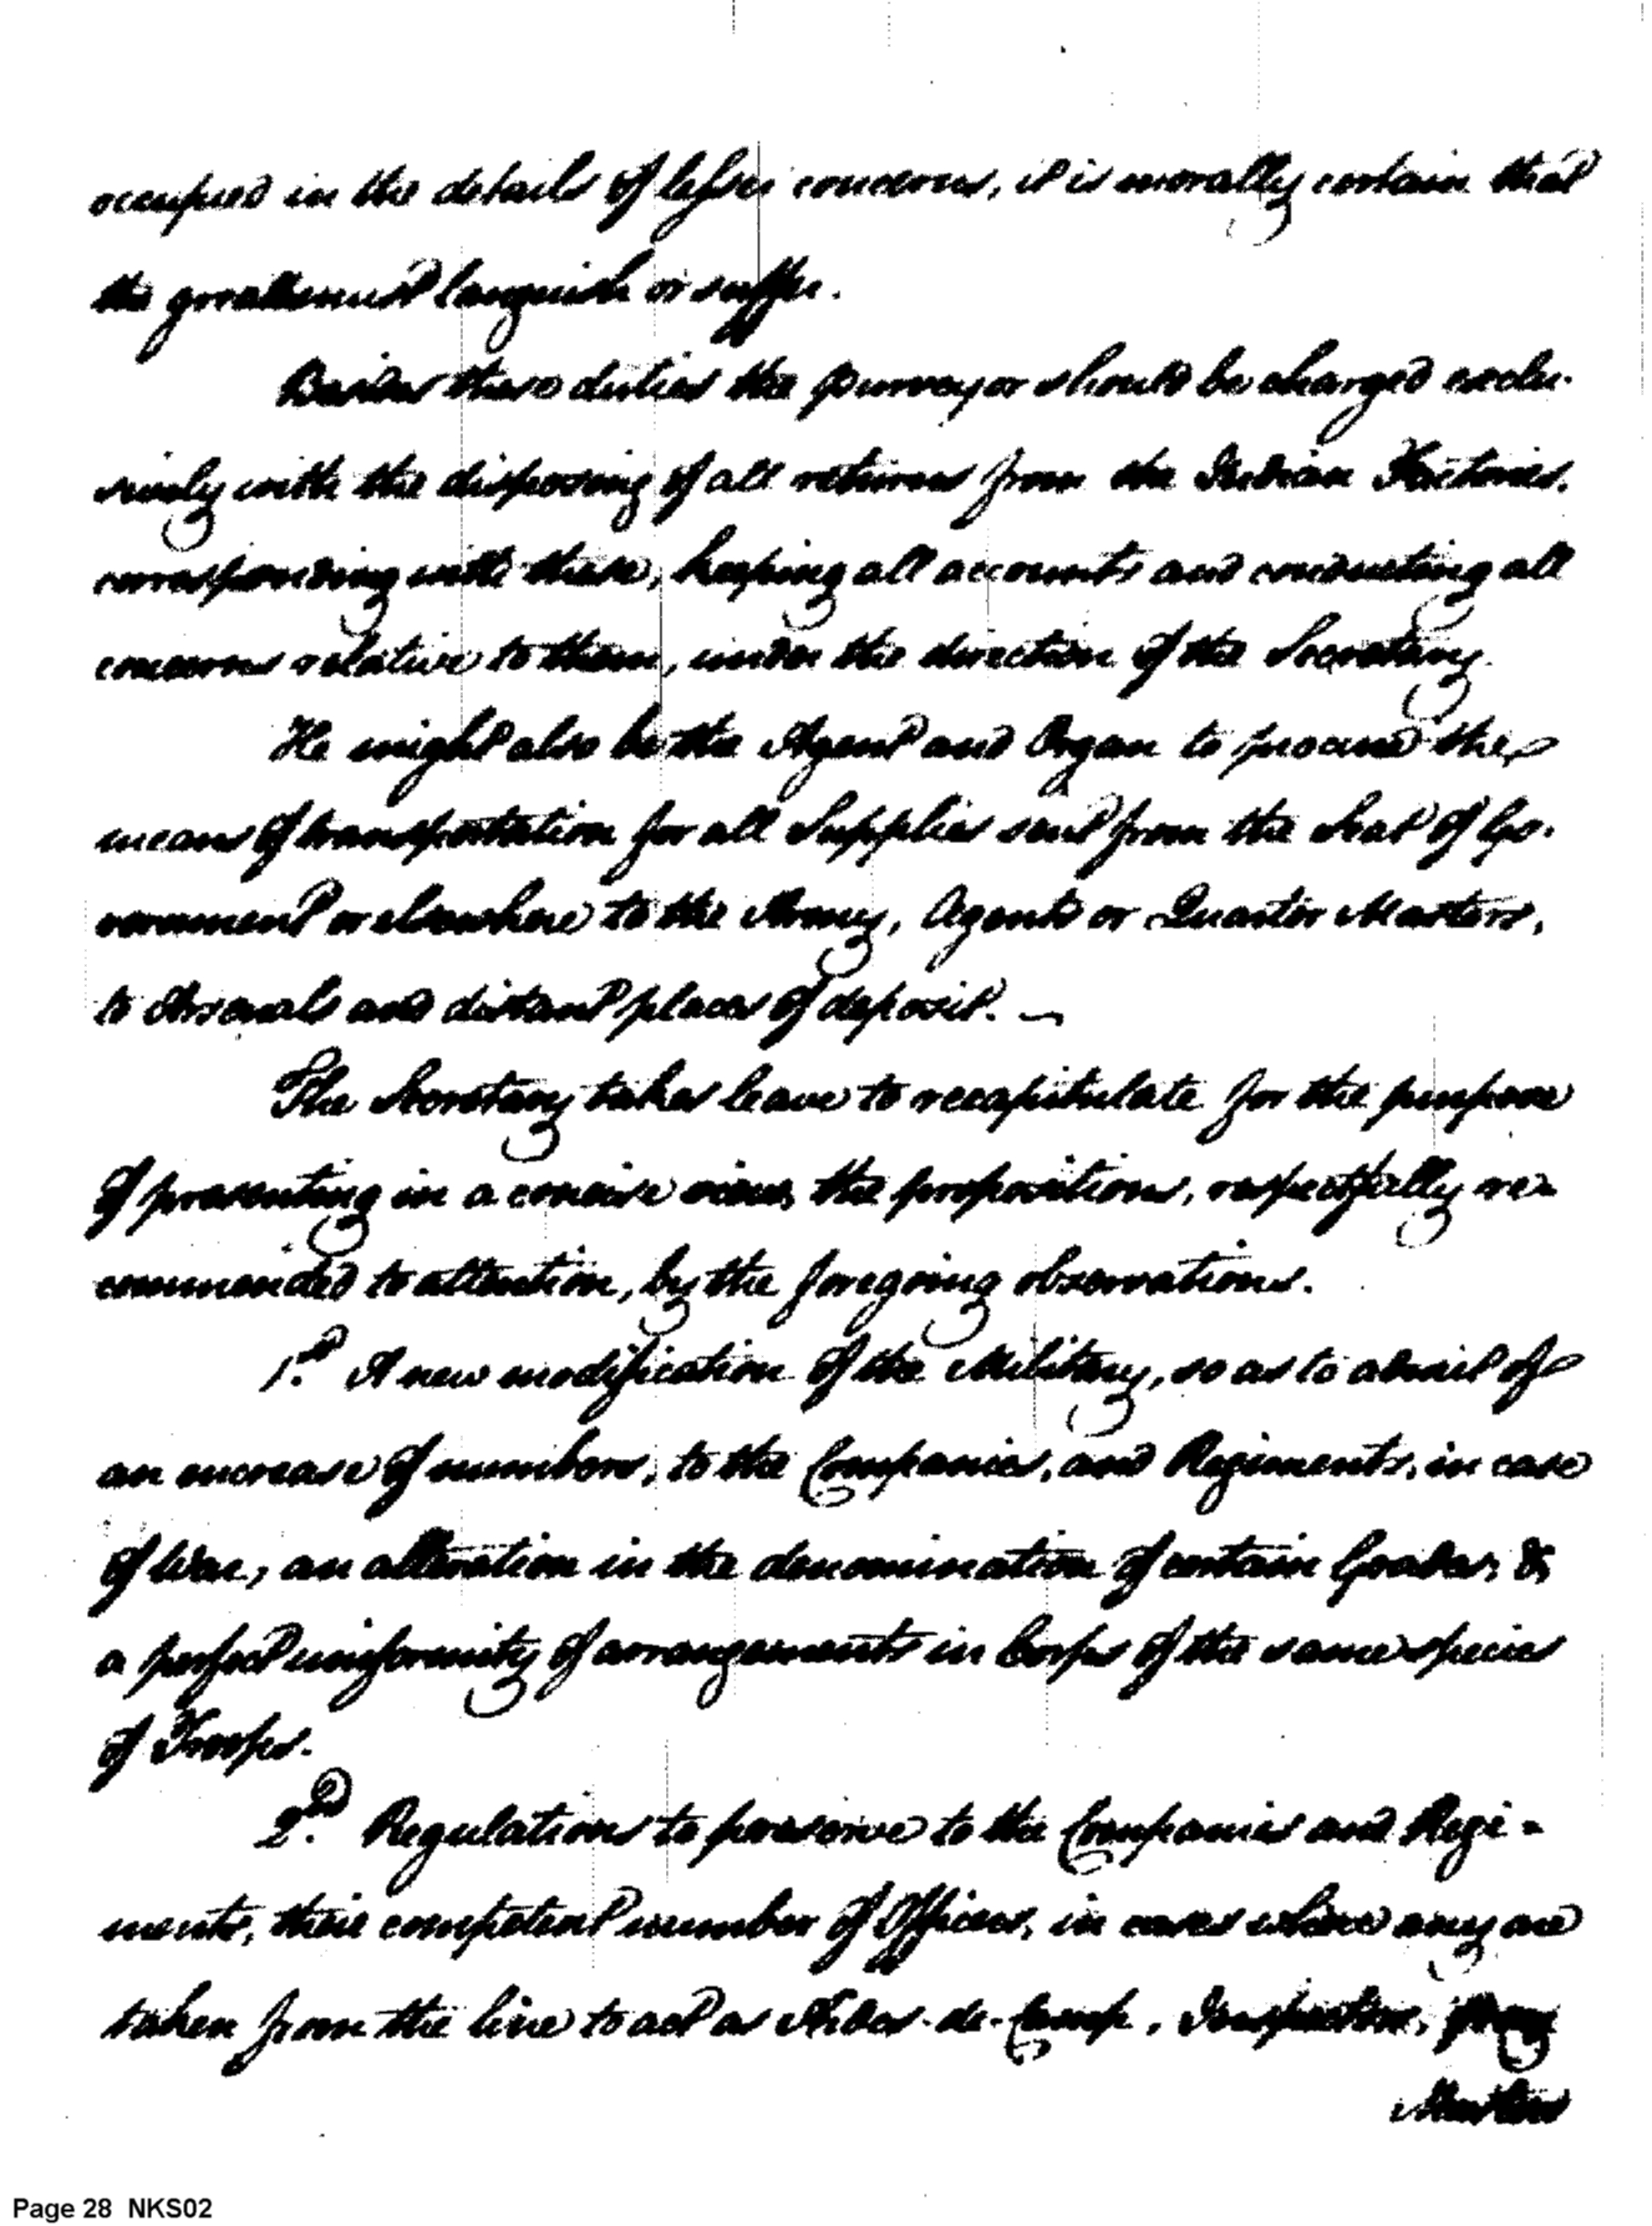 occupied in the details of lesser concerns, it is morally certain that
the greater must languish or suffer.
Besides these duties the purveyor should be charged exclu-
sively with the disposing of all returns from the Indian Factories,
corresponding with these, keeping all accounts and conducting all
concerns relative to them, under the direction of the Secretary.
He might also be the Agent and Organ to procure the
means of transportation for all Supplies sent from the Seat of Go-
vernment or elsewhere to the Army, Agents or Quarter Masters,
to Arsenals and distant places of deposit. —
The Secretary takes leave to recapitulate for the purpose
of presenting in a concise view, the propositions, respectfully re-
commended to attention, by the foregoing observations.
1st. A new modification of the Military, so as to admit of
an increase of numbers, to the Companies, and Regiments, in case
of War, an alteration in the denomination of certain Grades, &
a perfect uniformity of arrangements in Corps of the same species
of Troops.
2nd. Regulations to preserve to the Companies and Regi-
ments, their competent number of Officers, in cases where any are
taken from the line to act as Aides-de-Camp, Inspectors,
Masters
Page 28 NKS02